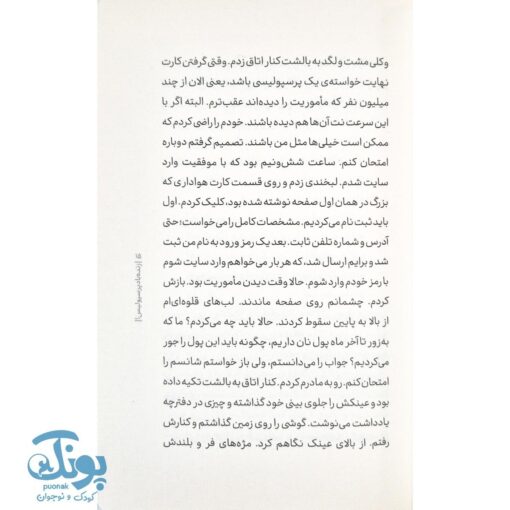 و کلی مشت و لگد به بالشت کنار اتاق زدم. وقتی گرفتن کارت
نهایت خواسته‌ی یک پرسپولیسی باشد، یعنی الان از چند
میلیون نفر که مأموریت را دیده‌اند عقب‌ترم. البته اگر با
این سرعت نت آن‌ها هم دیده باشند. خودم را راضی کردم که
ممکن است خیلی‌ها مثل من باشند. تصمیم گرفتم دوباره
امتحان کنم. ساعت شش‌ونیم بود که با موفقیت وارد
سایت شدم. لبخندی زدم و روی قسمت کارت هواداری که
بزرگ در همان اول صفحه نوشته شده بود، کلیک کردم. اول
باید ثبت نام می‌کردیم. مشخصات کامل را می‌خواست؛ حتی
آدرس و شماره تلفن ثابت. بعد یک رمز ورود به نام من ثبت
شد و برایم ارسال شد، که هر بار می‌خواهم وارد سایت شوم
با رمز خودم وارد شوم. حالا وقت دیدن مأموریت بود. بازش
کردم. چشمانم روی صفحه ماندند. لب‌های قلوه‌ای‌ام
از بالا به پایین سقوط کردند. حالا باید چه می‌کردم؟ ما که
به‌زور تا آخر ماه پول نان داریم، چگونه باید این پول را جور
می‌کردیم؟ جواب را می‌دانستم، ولی باز خواستم شانسم را
امتحان کنم. رو به مادرم کردم. کنار اتاق به بالشت تکیه داده
بود و عینکش را جلوی بینی خود گذاشته و چیزی در دفترچه
یادداشت می‌نوشت. گوشی را روی زمین گذاشتم و کنارش
رفتم. از بالای عینک نگاهم کرد. مژه‌های فر و بلندش
پونک
puonak
کودک و نوجوان